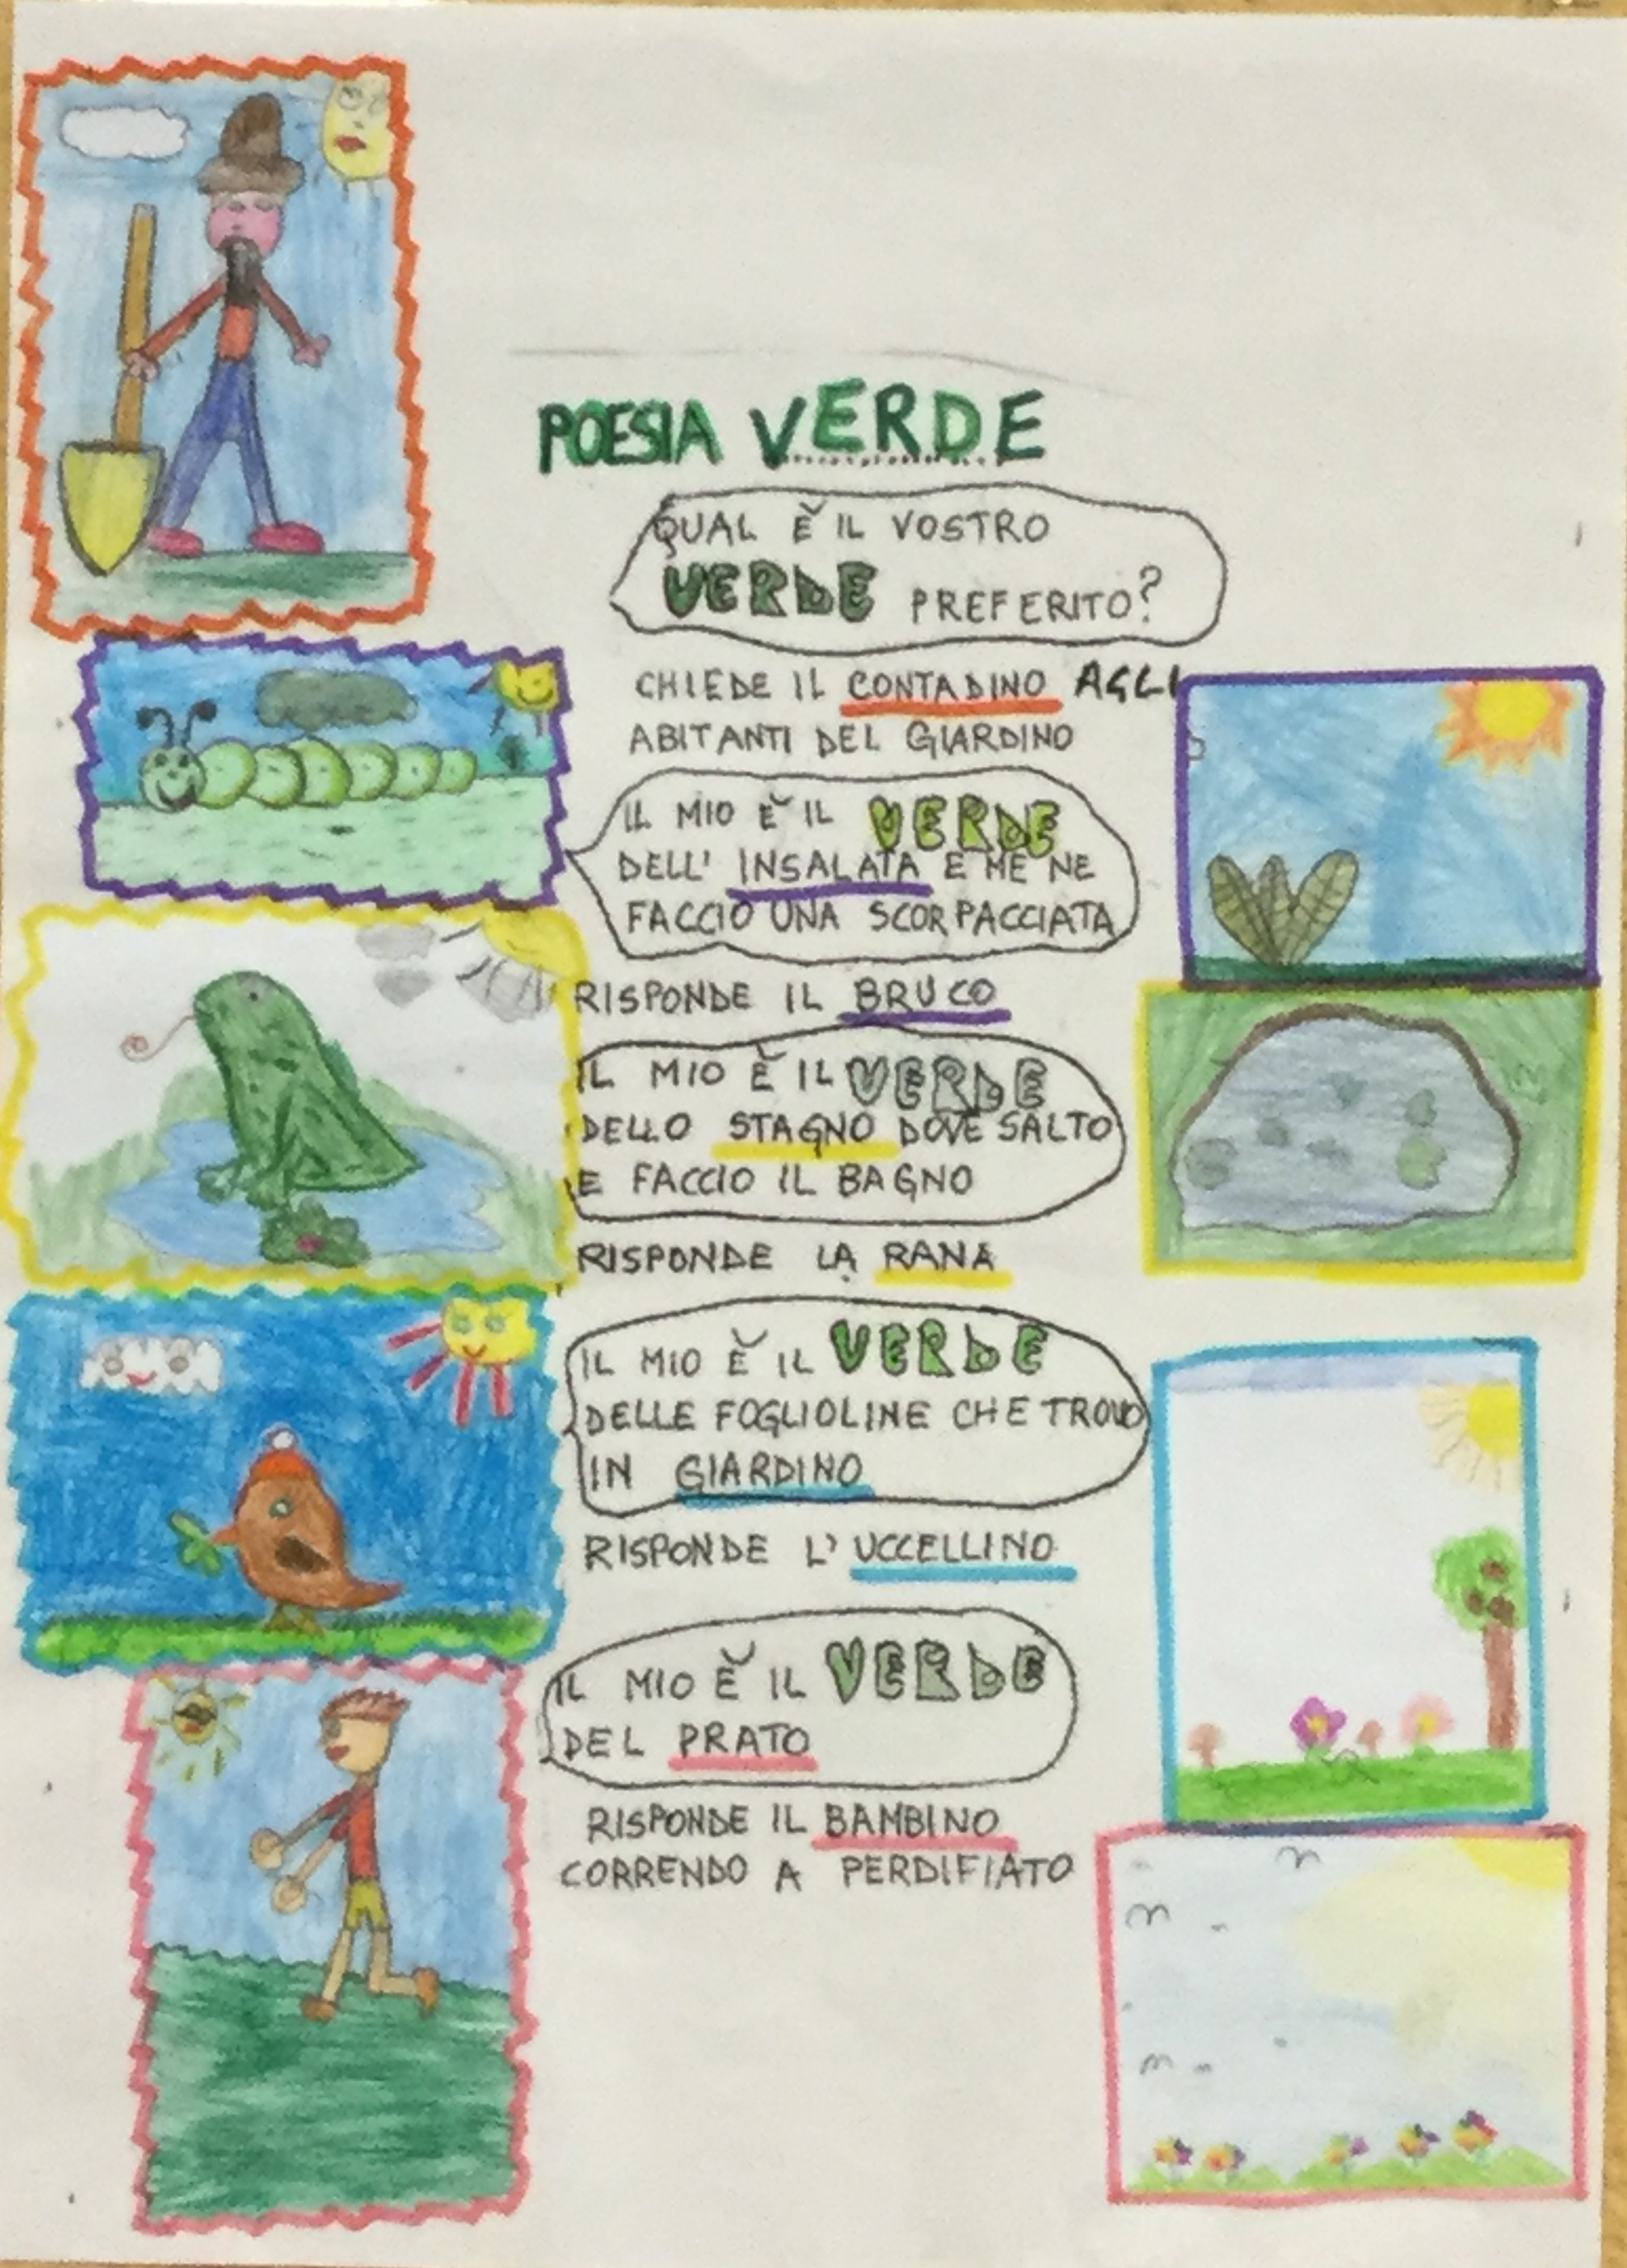 POESIA VERDE
QUAL È IL VOSTRO
VERDE PREFERITO?
CHIEDE IL CONTADINO AGLI
ABITANTI DEL GIARDINO
IL MIO È IL VERDE
DELL' INSALATA E ME NE
FACCIO UNA SCORPACCIATA
RISPONDE IL BRUCO
IL MIO È IL VERDE
DELLO STAGNO DOVE SALTO
E FACCIO IL BAGNO
RISPONDE LA RANA
IL MIO È IL VERDE
DELLE FOGLIOLINE CHE TROVO
IN GIARDINO
RISPONDE L'UCCELLINO
IL MIO È IL VERDE
DEL PRATO
RISPONDE IL BAMBINO
CORRENDO A PERDIFIATO